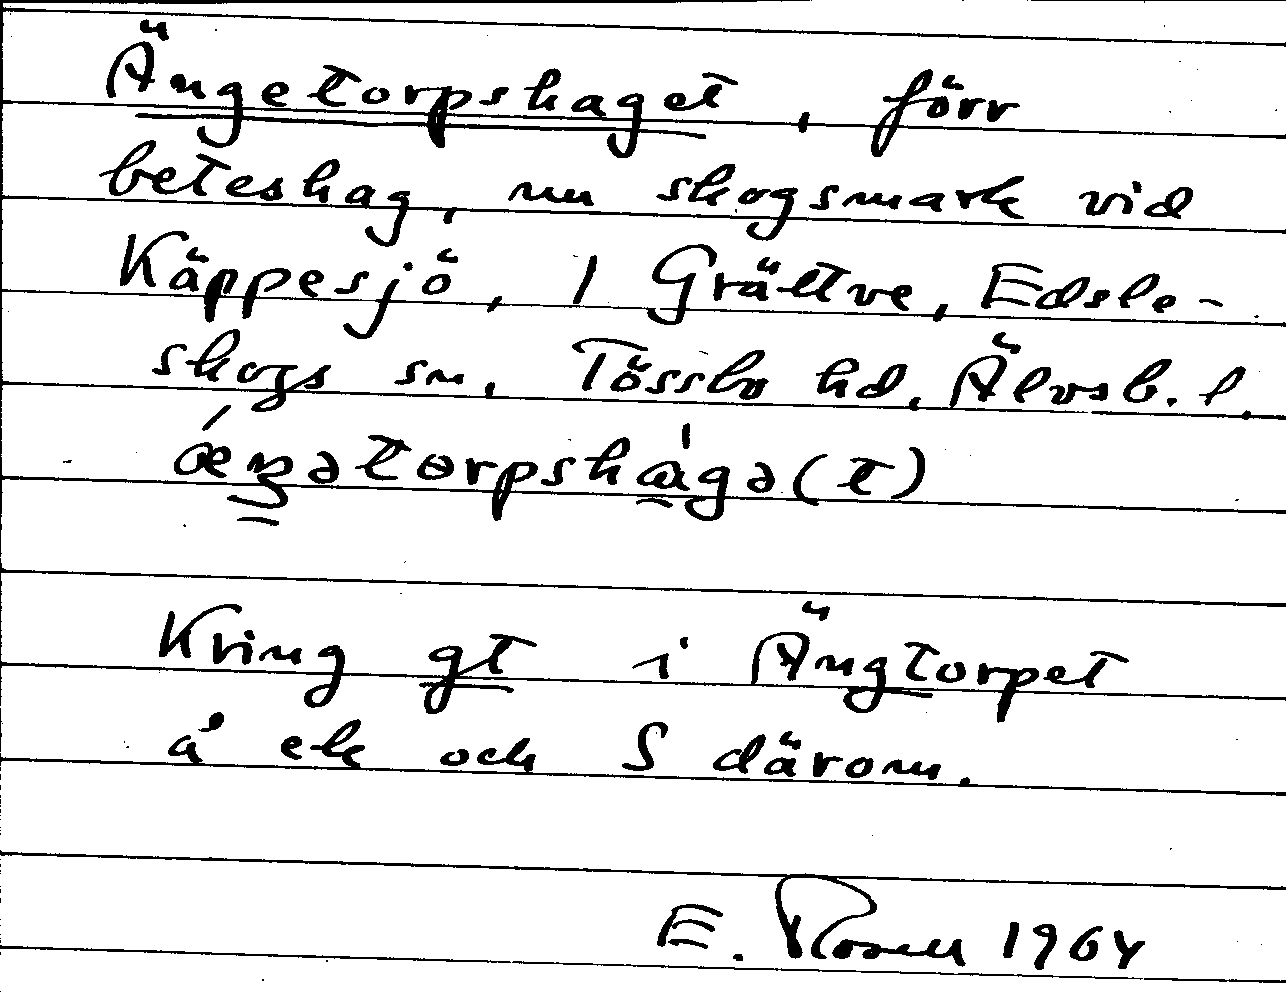 Ängetorpshaget, förr
beteshag, nu skogsmark vid
Käppesjö, 1 Grättve, Edsle-
skogs sn. Tössbo hd. Älvsb. l.
ǽŋətorpshàgə(t)
Kring gt i Ängtorpet
å ek och S därom.
E. Rosell 1964